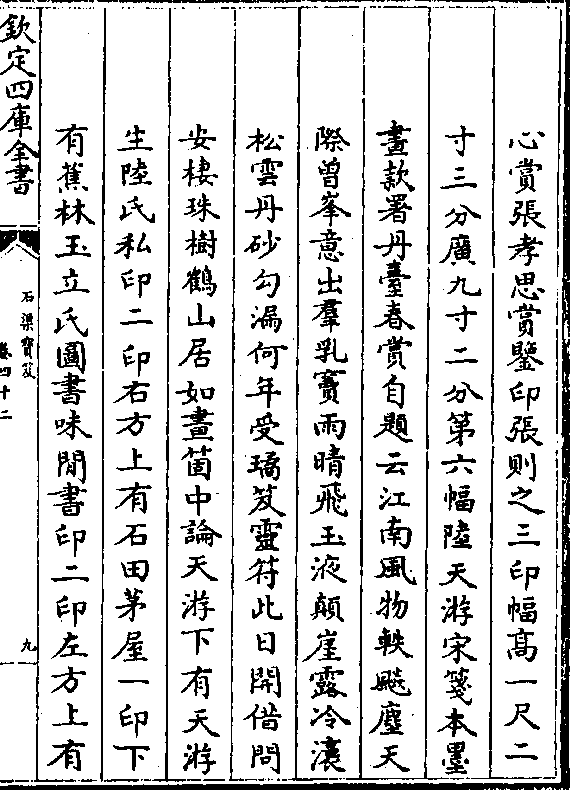 心賞張孝思賞鑒印張則之三印幅高一尺二
寸三分廣九寸二分第六幅陸天游宋箋本墨
畫款署丹臺春賞自題云江南風物軼飇塵天
際曾峯意出羣乳竇雨晴飛玉液顛崖露冷瀼
松雲丹砂勾漏何年受璚笈靈符此日開借問
安棲珠樹鶴山居如畫箇中論天游下有天游
生陸氏私印二印右方上有石田茅屋一印下
有蕉林玉立氏圖書味閒書印二印左方上有
欽定四庫全書
石渠寳笈
卷四十二
九